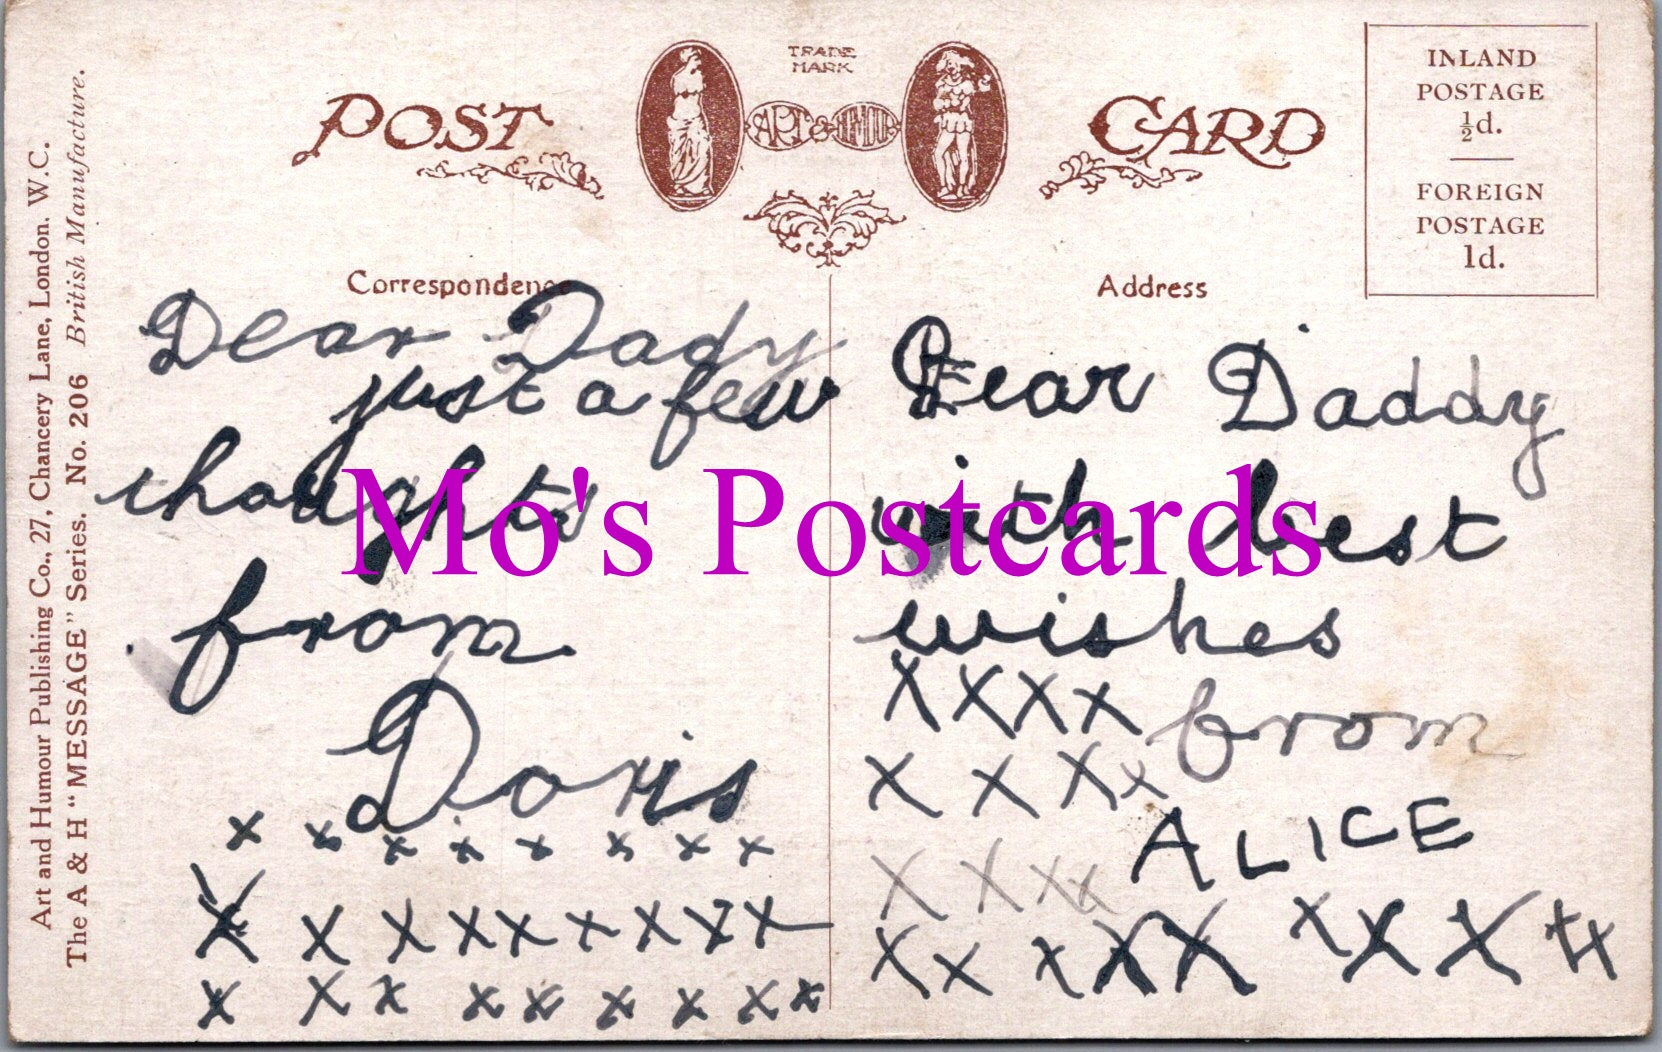 POST CARD
TRADE
MARK
ART & HUMOUR
INLAND
POSTAGE
½d.
FOREIGN
POSTAGE
1d.
Art and Humour Publishing Co., 27, Chancery Lane, London. W.C.
The A & H "MESSAGE" Series. No. 206 British Manufacture.
Correspondence
Dear Dady
just a few
thoughts
from
Doris
x x x x x x x x
X X X X X X X X X
x X x x x x x x x
Address
Dear Daddy
with best
wishes
X X X X from
X X X x
ALICE
X X X x
X X X X X X X X x x
Mo's Postcards